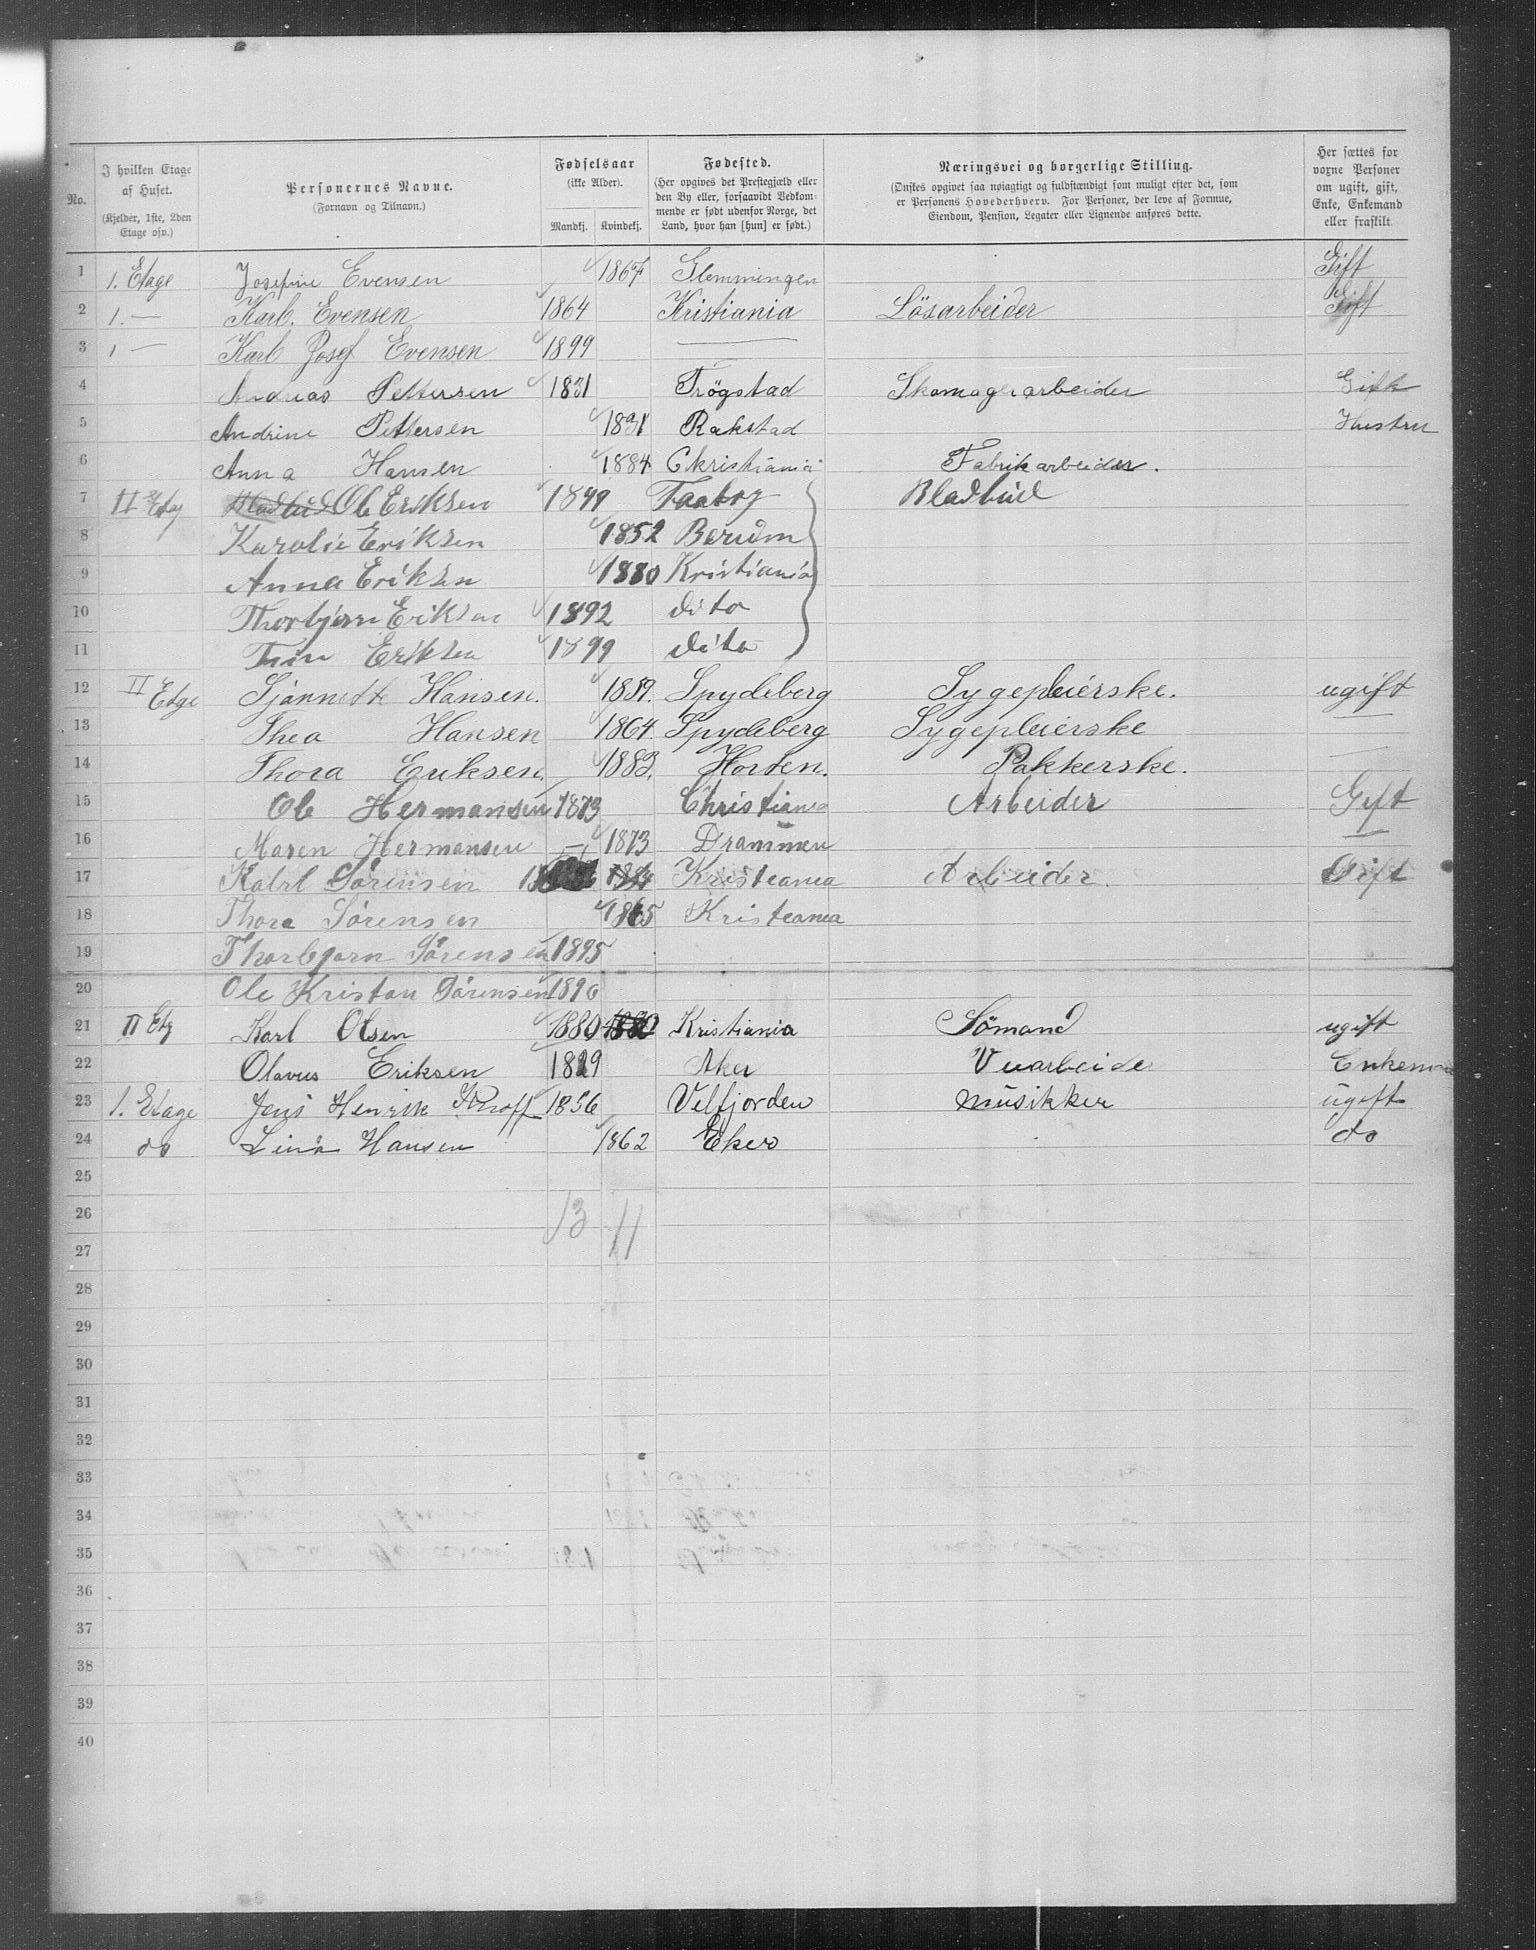 No. | I hvilken Etage af Huset. (Kjelder, 1ste, 2den Etage osv.) | Personernes Navne. (Fornavn og Tilnavn.) | Fødselsaar (ikke Alder). Mandkj. Kvindekj. | Fødested. (Her opgives det Prestegjæld eller den By eller, forsaavidt Vedkommende er født udenfor Norge, det Land, hvor han [hun] er født.) | Næringsvei og borgerlige Stilling. (Ønskes opgivet saa nøiagtigt og fuldstændigt som muligt efter det, som er Personens Hovederhverv. For Personer, der leve af Formue, Eiendom, Pension, Legater eller Lignende anføres dette. | Her sættes for voxne Personer om ugift, gift, Enke, Enkemand eller fraskilt.
1 1. Etage Josefine Evensen 1867 Glemmingen Gift
2 1. — Karl. Evensen 1864 Kristiania Lösarbeider Gift
3 1 — Karl Josef Evensen 1899 —
4 Andreas Pettersen 1831 Trögstad Skomagerarbeider Gift
5 Andrine Pettersen 1831 Rakstad Hustru
6 Anna Hansen 1884 Christiania Fabrikarbeider.
7 II Etg Ole Eriksen 1849 Faaborg Bladbud
8 Karolie Eriksen 1852 Berum
9 Anna Eriksen 1880 Kristiania
10 Thorbjørn Eriksen 1892 dito
11 Eriksen 1899 dito
12 II Etge Sjannette Hansen. 1859. Spydeberg Sygepleierske. ugift
13 Thea Hansen 1864. Spydeberg Sygepleierske —
14 Thora Eriksen. 1883. Horten. Pakkerske. —
15 Ole Hermansen 1873 Christiania Arbeider Gift
16 Maren Hermansen — 1873 Drammen —
17 Karl Sørensen 1884 Kristiania Arbeider. Gift
18 Thora Sørensen 1865 Kristiania
19 Thorbjørn Sørensen 1895
20 Ole Kristan Sørensen 1890
21 II Etg Karl Olsen 1880 1880 Kristiania Sömand ugift
22 Olavus Eriksen 1829 Aker Veiarbeide Enkem
23 1. Etage Jens Henrik Knoff 1856 Velfjorden musikker ugift
24 do Lina Hansen 1862 Eker do
25
26 13 11
27
28
29
30
31
32
33
34
35
36
37
38
39
40